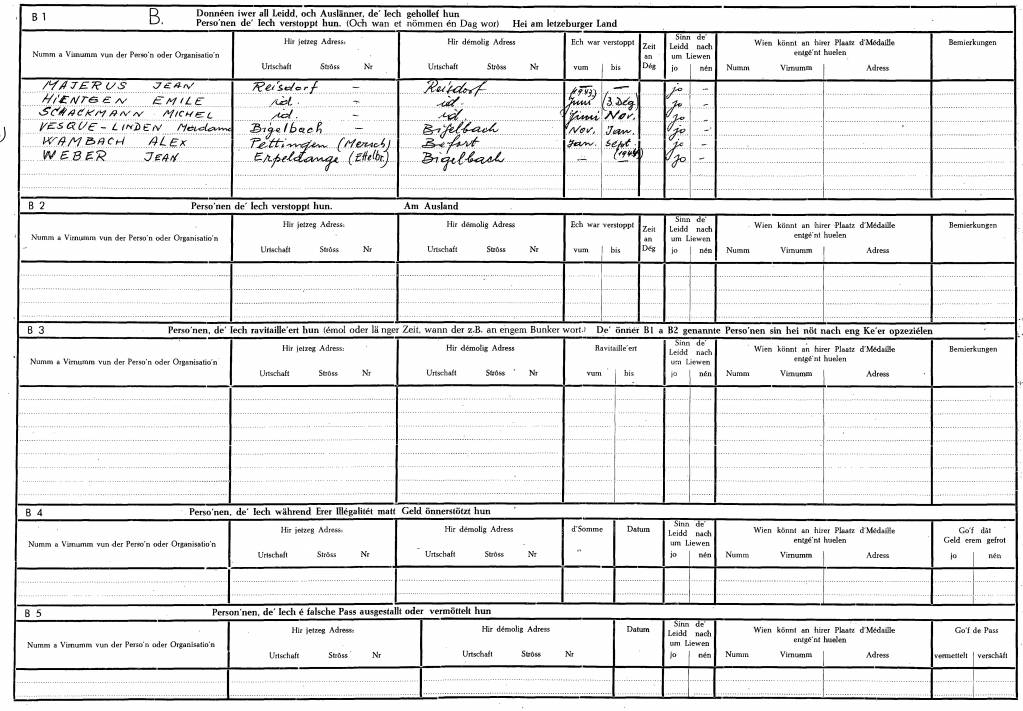 B 1 B. Donnéen iwer all Leidd, och Auslänner, de' Iech gehollef hun
Perso'nen de' Iech verstoppt hun. (Och wan et nömmen én Dag wor) Hei am letzeburger Land
Numm a Virnumm vun der Perso'n oder Organisatio'n Hir jetzeg Adress: Hir démolig Adress Ech war verstoppt Zeit an Dég Sinn de' Leidd nach um Liewen Wien könnt an hirer Plaatz d'Médaille entgé'nt huelen Bemierkungen
Urtschaft Ströss Nr Urtschaft Ströss Nr vum bis jo nén Numm Virnumm Adress
MAJERUS JEAN Reisdorf – Reisdorf (1943) – jo –
HIENTGEN EMILE id. – id. Juni (3 Dég) jo –
SCHACKMANN MICHEL id. – id. Juni Nov. jo –
VESQUE-LINDEN Madame Bigelbach – Bigelbach Nov. Jan. jo –
WAMBACH ALEX Pettingen (Mersch) Befort Jan. Sept. jo –
WEBER JEAN Erpeldange (Ettelbr.) Bigelbach – (1944) – jo –
B 2 Perso'nen de' Iech verstoppt hun. Am Ausland
Numm a Virnumm vun der Perso'n oder Organisatio'n Hir jetzeg Adress: Hir démolig Adress Ech war verstoppt Zeit an Dég Sinn de' Leidd nach um Liewen Wien könnt an hirer Plaatz d'Médaille entgé'nt huelen Bemierkungen
Urtschaft Ströss Nr Urtschaft Ströss Nr vum bis jo nén Numm Virnumm Adress
B 3 Perso'nen, de' Iech ravitaille'ert hun (émol oder lä nger Zeit, wann der z.B. an engem Bunker wort.) De' önner B1 a B2 genannte Perso'nen sin hei nöt nach eng Ke'er opzeziélen
Numm a Virnumm vun der Perso'n oder Organisatio'n Hir jetzeg Adress: Hir démolig Adress Ravitaille'ert Sinn de' Leidd nach um Liewen Wien könnt an hirer Plaatz d'Médaille entgé'nt huelen Bemierkungen
Urtschaft Ströss Nr Urtschaft Ströss Nr vum bis jo nén Numm Virnumm Adress
B 4 Perso'nen, de' Iech während Erer Illégalitét matt Geld önnerstötzt hun
Numm a Virnumm vun der Perso'n oder Organisatio'n Hir jetzeg Adress: Hir démolig Adress d'Somme Datum Sinn de' Leidd nach um Liewen Wien könnt an hirer Plaatz d'Médaille entgé'nt huelen Go'f dät Geld erem gefrot
Urtschaft Ströss Nr Urtschaft Ströss Nr jo nén Numm Virnumm Adress jo nén
B 5 Person'nen, de' Iech é falsche Pass ausgestallt oder vermöttelt hun
Numm a Virnumm vun der Perso'n oder Organisatio'n Hir jetzeg Adress: Hir démolig Adress Datum Sinn de' Leidd nach um Liewen Wien könnt an hirer Plaatz d'Médaille entgé'nt huelen Go'f de Pass
Urtschaft Ströss Nr Urtschaft Ströss Nr jo nén Numm Virnumm Adress vermettelt verschäft